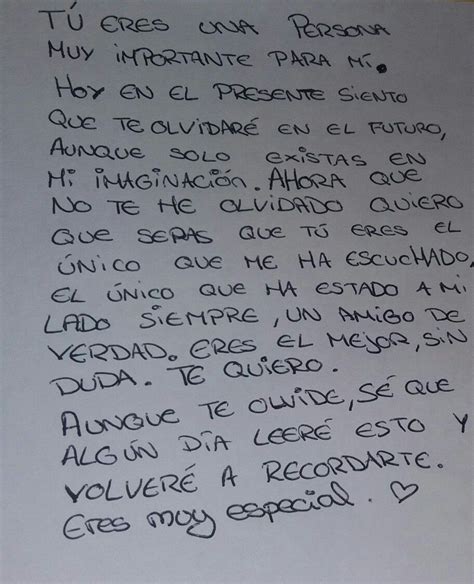 TÚ ERES UNA PERSONA
MUY IMPORTANTE PARA MÍ.
HOY EN EL PRESENTE SIENTO
QUE TE OLVIDARÉ EN EL FUTURO,
AUNQUE SOLO EXISTAS EN
MI IMAGINACIÓN. AHORA QUE
NO TE HE OLVIDADO QUIERO
QUE SEPAS QUE TÚ ERES EL
ÚNICO QUE ME HA ESCUCHADO,
EL ÚNICO QUE HA ESTADO A MI
LADO SIEMPRE, UN AMIGO DE
VERDAD. ERES EL MEJOR, SIN
DUDA. TE QUIERO.
AUNQUE TE OLVIDE, SÉ QUE
ALGÚN DÍA LEERÉ ESTO Y
VOLVERÉ A RECORDARTE.
Eres muy especial. ♡